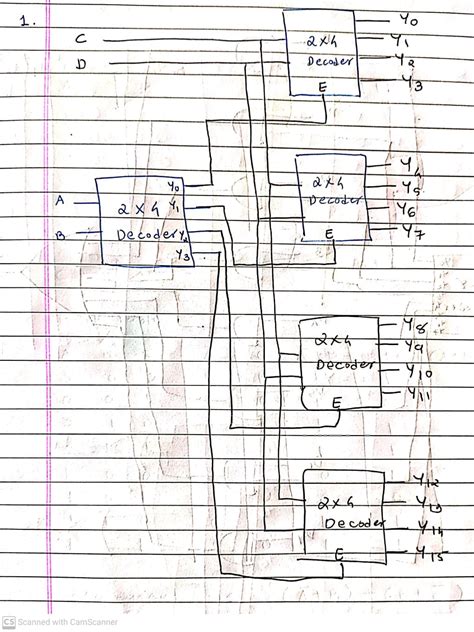 1.
C
D
2x4
Decoder
E
Y0
Y1
Y2
Y3
A
B
2x4
Decoder
Y0
Y1
Y2
Y3
2x4
Decoder
E
Y4
Y5
Y6
Y7
2x4
Decoder
E
Y8
Y9
Y10
Y11
2x4
Decoder
E
Y12
Y13
Y14
Y15
CS Scanned with CamScanner